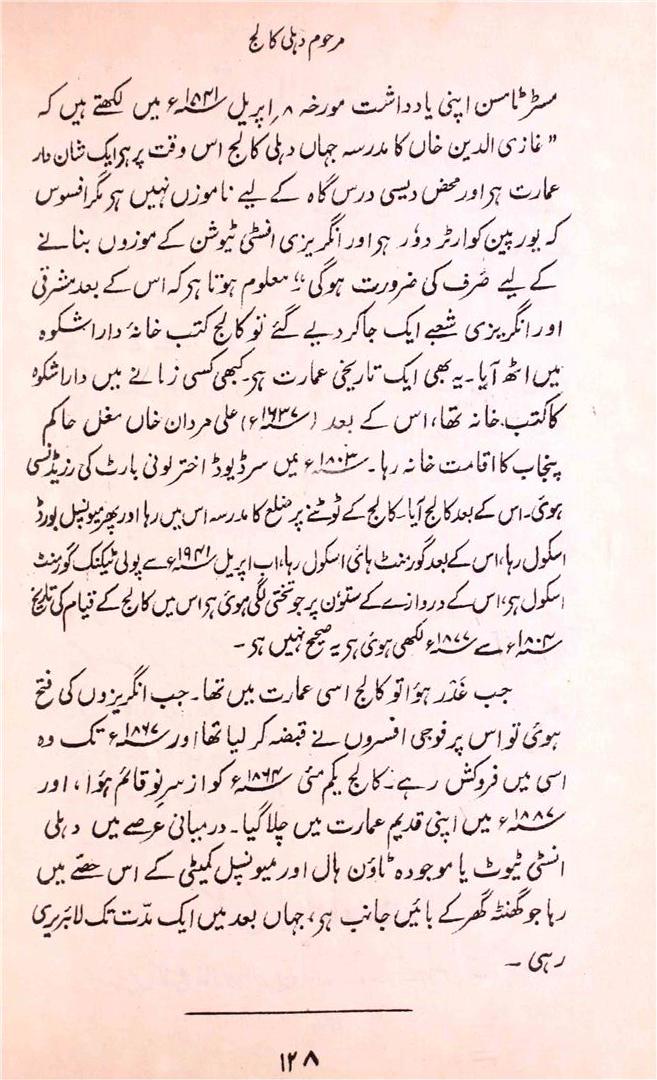 مرحوم دہلی کالج
مسٹر ٹامسن اپنی یادداشت مورخہ ۸ اپریل ۱۸۴۱ء میں لکھتے ہیں کہ
"غازی الدین خاں کا مدرسہ جہاں دہلی کالج اس وقت پر ہر ایک شان دار
عمارت ہر اور محض دیسی درس گاہ کے لیے ناموزں نہیں ہر مگر افسوس
کہ یورپین کوارٹر دؤر ہر اور انگریزی انسٹی ٹیوشن کے موزوں بنانے
کے لیے صَرف کی ضرورت ہوگی"۔ معلوم ہوتا ہر کہ اس کے بعد مشرقی
اور انگریزی شعبے ایک جا کر دیے گئے تو کالج کتب خانۂ دارا شکوہ
میں اٹھ آیا۔ یہ بھی ایک تاریخی عمارت ہر۔ کبھی کسی زمانے میں داراشکوہ
کا کتب خانہ تھا، اس کے بعد (۱۶۳۷ء) علی مردان خاں مغل حاکم
پنجاب کا اقامت خانہ رہا۔ ۱۸۰۳ء میں سر ڈیوڈ اختر لونی بارٹ کی رزیڈنسی
ہوئی۔ اس کے بعد کالج آیا۔ کالج کے ٹوٹنے پر ضلع کا مدرسہ اس میں رہا اور پھر میونسپل بورڈ
اسکول رہا، اس کے بعد گورنمنٹ ہائی اسکول رہا، اب اپریل ۱۹۴۱ء سے پولی ٹیکنک گورنمنٹ
اسکول ہر، اس کے دروازے کے ستوٗن پر جو تختی لگی ہوئی ہر اس میں کالج کے قیام کی تاریخ
۱۸۰۴ء سے ۱۸۷۷ء لکھی ہوئی ہر یہ صحیح نہیں ہر۔
جب غَدْر ہوٗا تو کالج اسی عمارت میں تھا۔ جب انگریزوں کی فتح
ہوئی تو اس پر فوجی افسروں نے قبضہ کر لیا تھا اور ۱۸۶۷ء تک وہ
اسی میں فروکش رہے۔ کالج یکم مئی ۱۸۶۴ء کو از سرِ نو قائم ہوٗا، اور
۱۸۸۷ء میں اپنی قدیم عمارت میں چلا گیا۔ درمیانی عرصے میں دہلی
انسٹی ٹیوٹ یا موجودہ ٹاؤن ہال اور میونسپل کمیٹی کے اس حصّے میں
رہا جو گھنٹہ گھر کے بائیں جانب ہر، جہاں بعد میں ایک مدّت تک لائبریری
رہی۔
۱۲۸